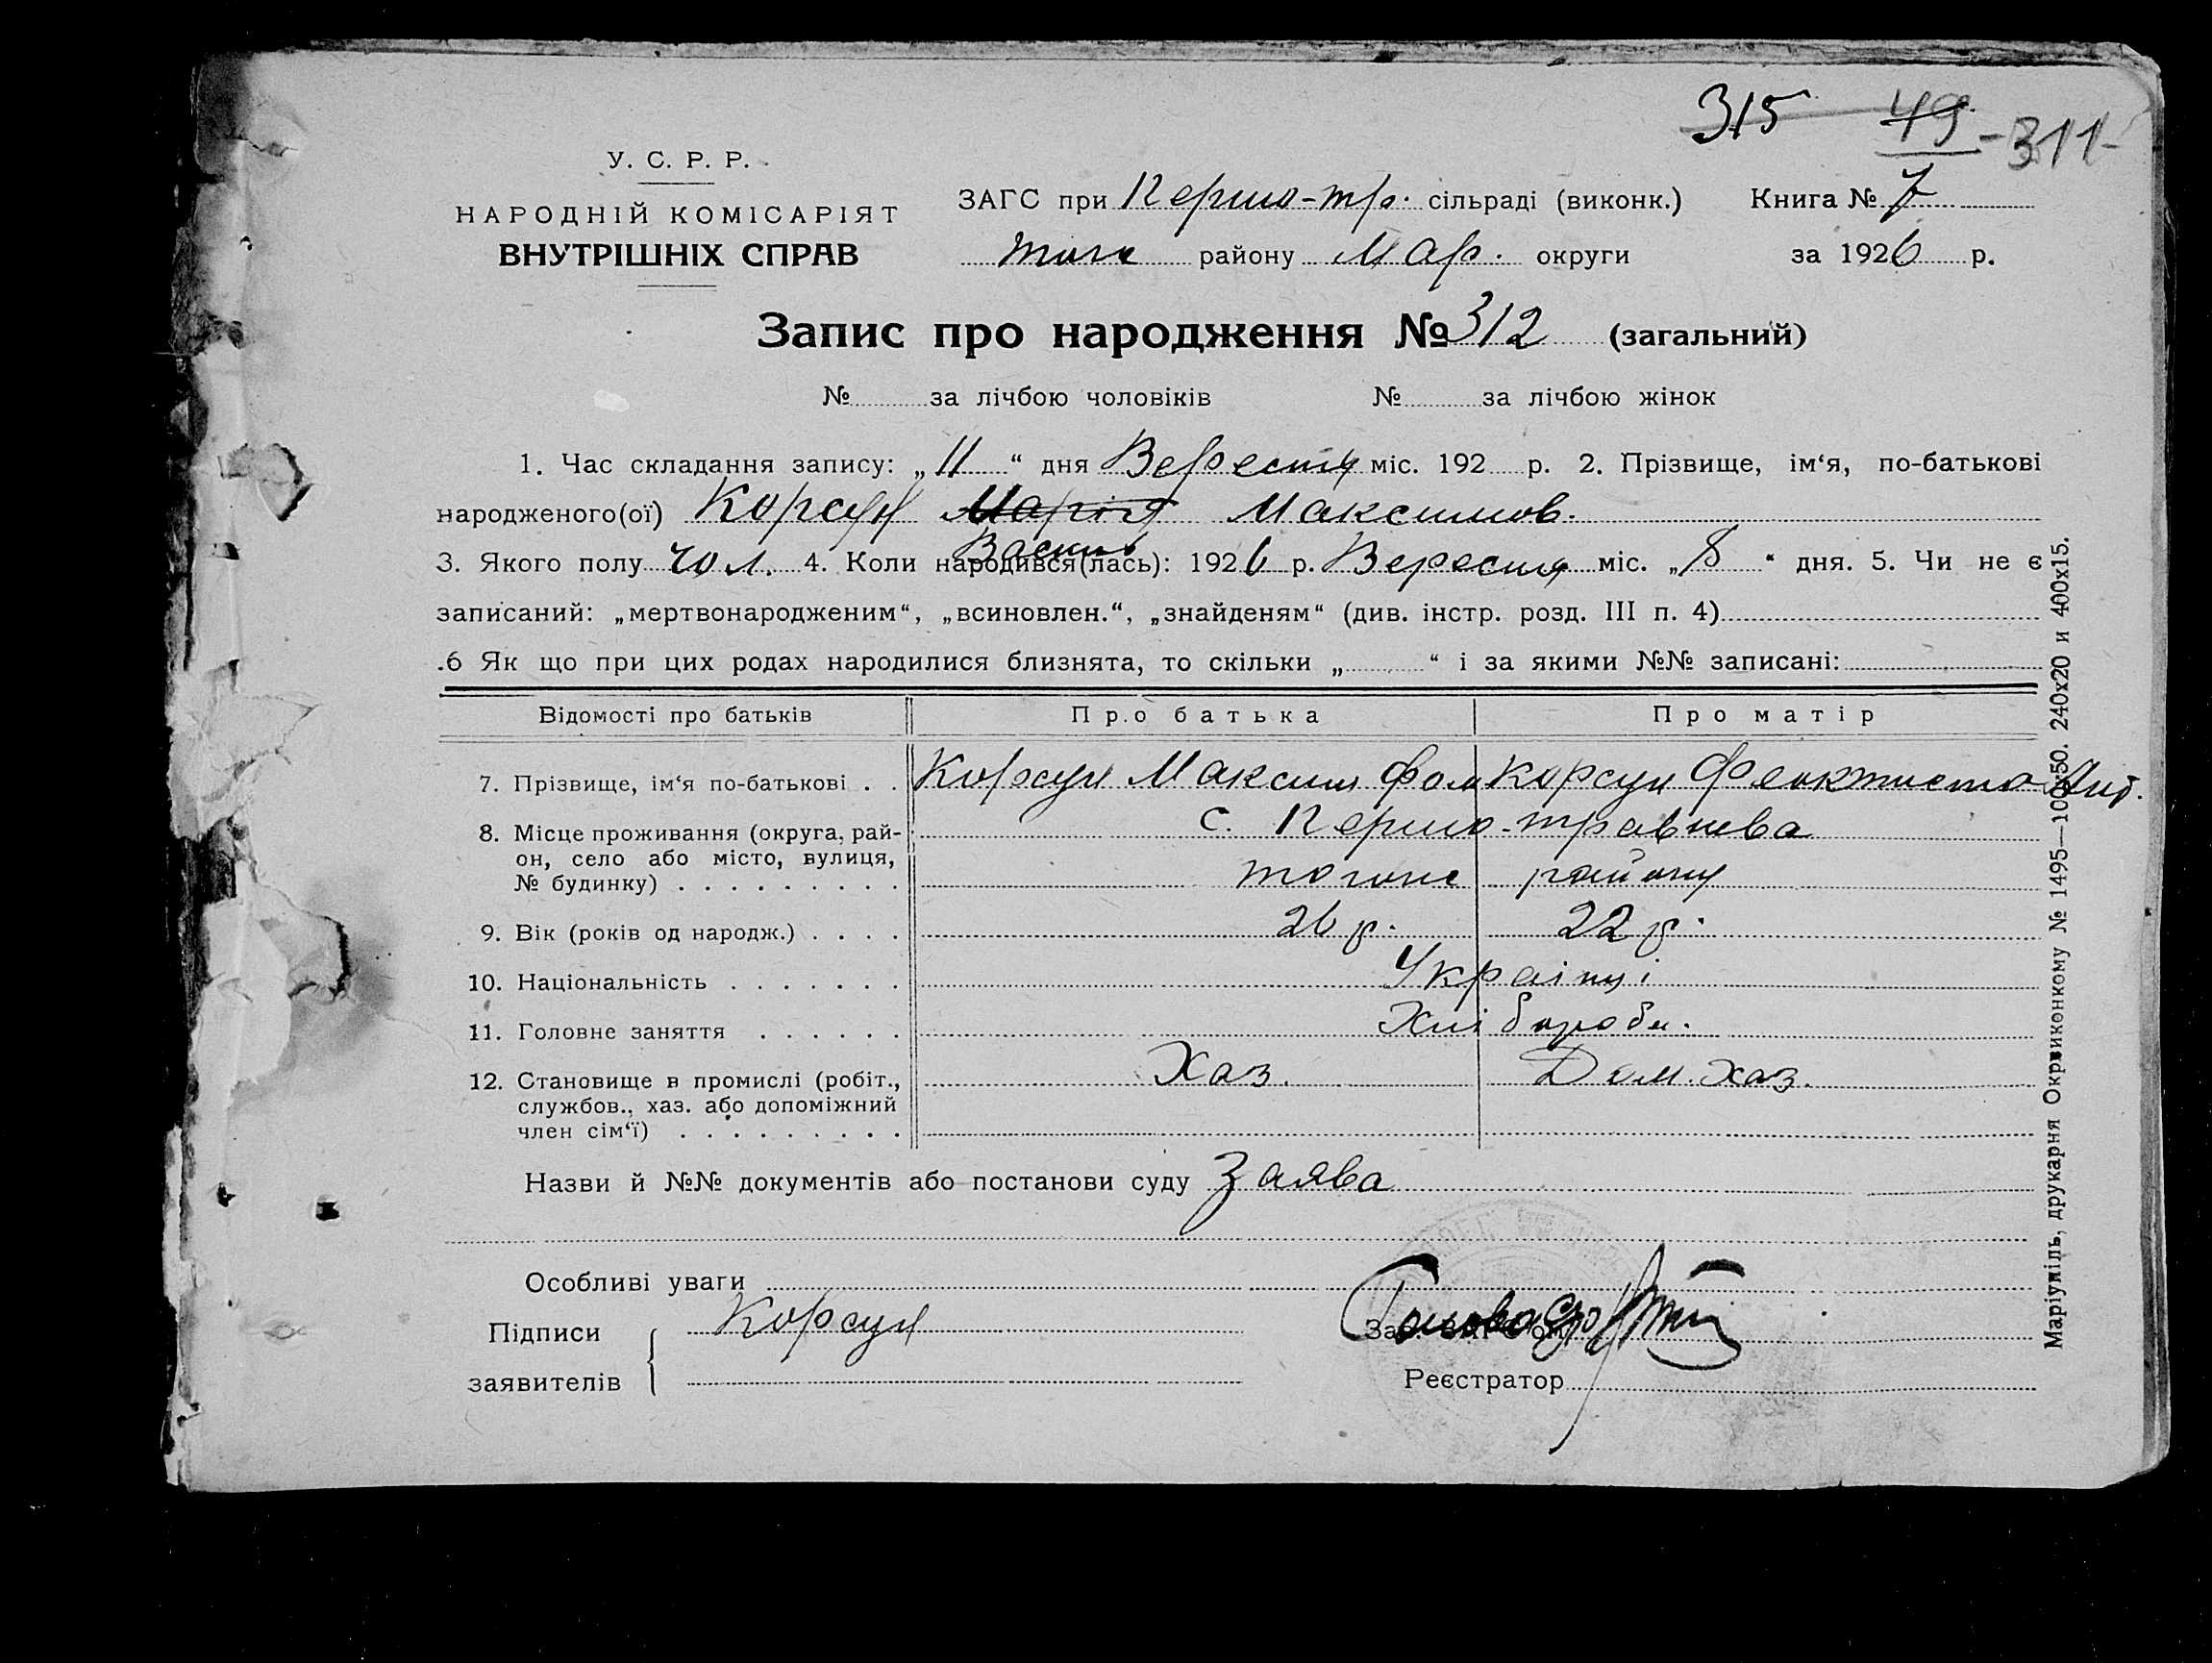 315 49 -311-
У. С. Р. Р.
НАРОДНІЙ КОМІСАРІЯТ
ВНУТРІШНІХ СПРАВ
ЗАГС при Першо-тр. сільраді (виконк.) Книга № 7
району Мар. округи за 1926 р.
Запис про народження № 312 (загальний)
№ за лічбою чоловіків № за лічбою жінок
1. Час складання запису: „11“ дня Вересня міс. 192 р. 2. Прізвище, ім‘я, по-батькові
народженого(ої) Корсун Марія Максимов.
Василь
3. Якого полу чол. 4. Коли народився(лась): 1926 р. Вересня міс. „8“ дня. 5. Чи не є
записаний: „мертвонародженим“, „всиновлен.“, „знайденям“ (див. інстр. розд. III п. 4)
.6 Як що при цих родах народилися близнята, то скільки „ “ і за якими №№ записані:
Відомості про батьків Про батька Про матір
7. Прізвище, ім‘я по-батькові . . Корсун Максим Фом Корсун Феоктиста Ант.
8. Місце проживання (округа, рай-
он, село або місто, вулиця,
№ будинку) . . . . . . . . .
с. Першо-травнева
того ж району
9. Вік (років од народж.) . . . . 26 р. 22 р.
10. Національність . . . . . . . Українці
11. Головне заняття . . . . . . Хлібороби.
12. Становище в промислі (робіт.,
службов., хаз. або допоміжний
член сім‘ї) . . . . . . . . .
Хаз. Дом. хаз.
Назви й №№ документів або постанови суду Заява
Особливі уваги
Підписи
заявителів
Корсун
Зав. ЗАГС‘ом Голова
Реєстратор
Маріупіль, друкарня Окрвиконкому № 1495—100х50. 240х20 и 400х15.